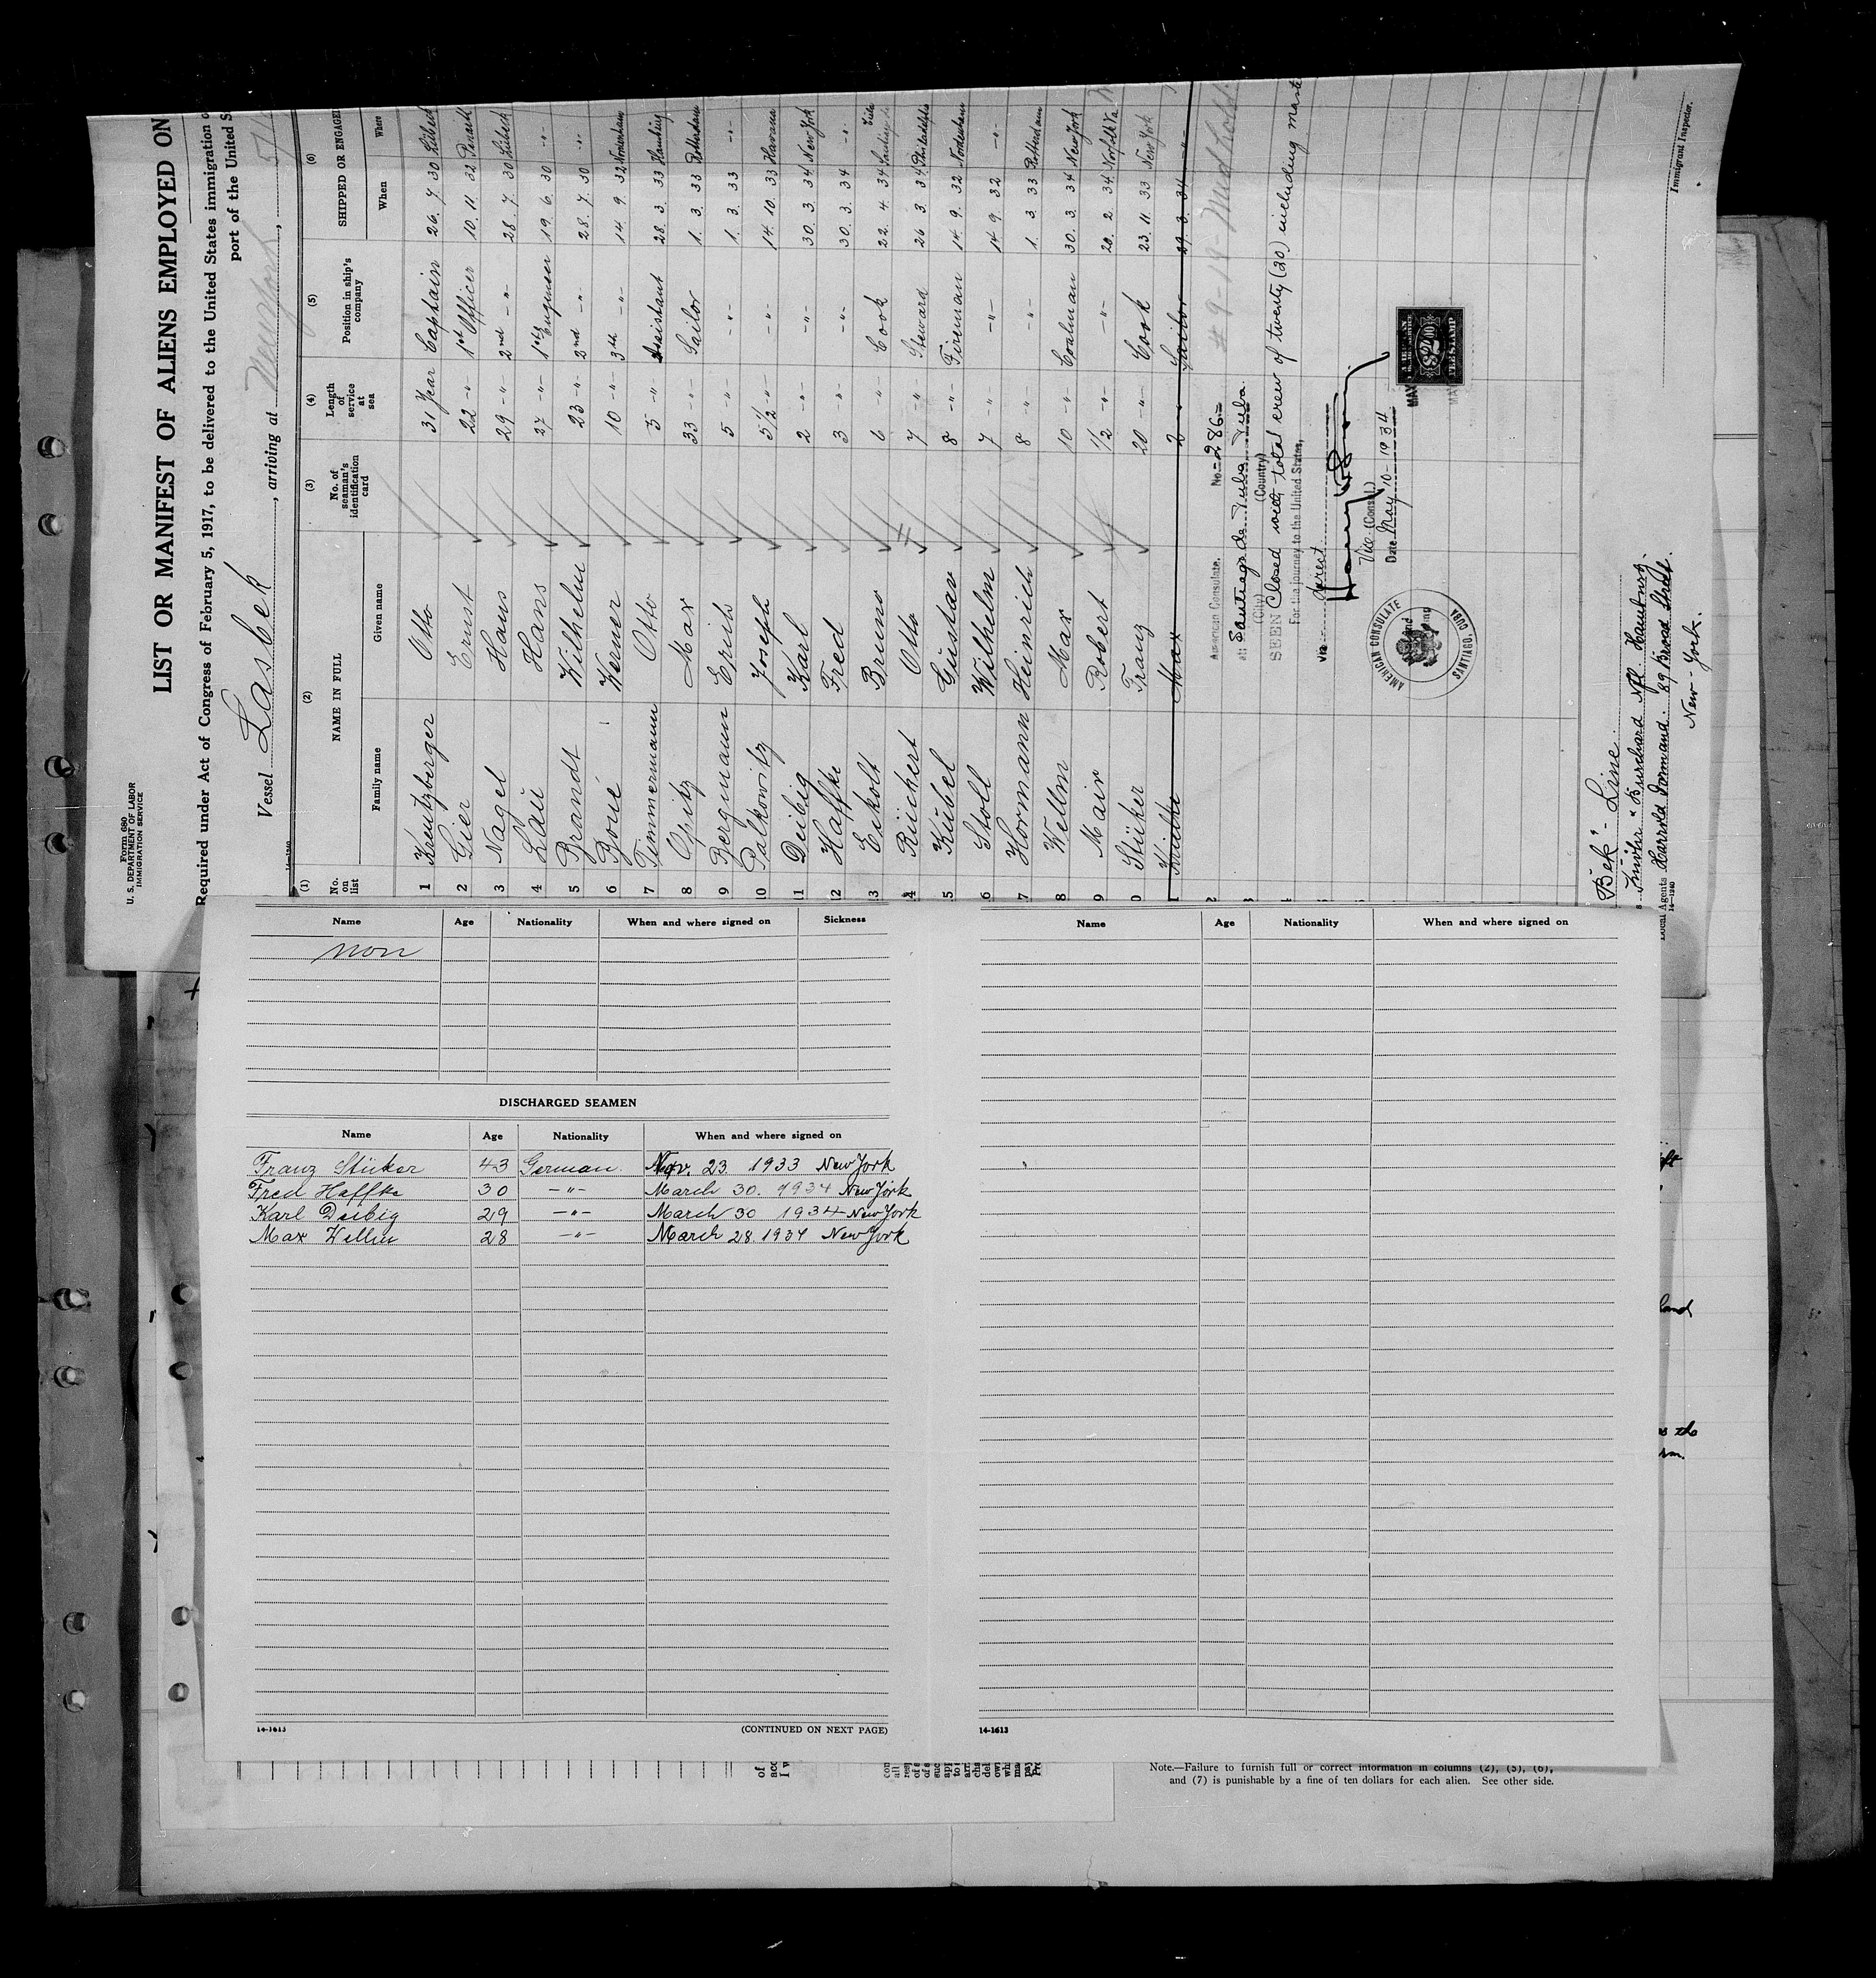 Form 680
U. S. DEPARTMENT OF LABOR
IMMIGRATION SERVICE
LIST OR MANIFEST OF ALIENS EMPLOYED ON
Required under Act of Congress of February 5, 1917, to be delivered to the United States immigration
port of the United S
Vessel Lasbek, arriving at New York
(1) (2) (3) (4) (5) (6)
No. on list NAME IN FULL No. of seaman's identification card Length of service at sea Position in ship's company SHIPPED OR ENGAGED
Family name Given name When Where
1 Kreutzberger Otto 31 Year Captain 26. 7. 30 Lübeck
2 Gier Ernst 22 -"- 1st Officer 10. 11. 32 Penarth
3 Nagel Hans 29 -"- 2nd -"- 28. 7. 30 Lübeck
4 Lau Hans 27 -"- 1st Engineer 19. 6. 30 -"-
5 Brandt Wilhelm 23 -"- 2nd -"- 28. 7. 30 -"-
6 Boué Werner 10 -"- 3th -"- 14. 9. 32 Nordenham
7 Temmermann Otto 5 -"- Assistant 28. 3. 33 Hamburg
8 Opitz Max 33 -"- Sailor 1. 3. 33 Rotterdam
9 Bergmann Erich 5 -"- -"- 1. 3. 33 -"-
10 Palkowitz Joseph 5 1/2 -"- -"- 14. 10. 33 Havana
11 Deibig Karl 2 -"- -"- 30. 3. 34 New York
12 Haffke Fred 3 -"- -"- 30. 3. 34 -"-
13 Eikolt Bruno 6 -"- Cook 22. 4. 34
14 Rückert Otto 7 -"- Steward 26. 3. 34 Philadelphia
5 Kübel Gustav 8 -"- Fireman 14. 9. 32 Nordenham
6 Stoll Wilhelm 7 -"- -"- 14. 9. 32 -"-
7 Hormann Heinrich 8 -"- -"- 1. 3. 33 Rotterdam
8 Wellm Max 10 -"- Coalman 30. 3. 34 New York
9 Mair Robert 1/2 -"- -"- 20. 2. 34 Norfolk Va
0 Stüker Franz 20 -"- Cook 23. 11. 33 New York
1 Max 2 -"- Sailor 29. 3. 34 -"-
American Consulate. No. 286
at: Santiago de Cuba Cuba.
(City) (Country)
SEEN Closed with total crew of twenty (20) including master
For the journey to the United States,
via direct
Vice (Consul.)
Date May 10 - 1934
AMERICAN CONSULATE
SANTIAGO, CUBA
AMERICAN
$2.00
FEE STAMP
MAY
"Bek" - Line.
Burchard Nfl. Hamburg.
Local Agents Harrold Dormand. 89 Broad Street.
New-York.
14-1240
Immigrant Inspector.
Name Age Nationality When and where signed on Sickness
non
DISCHARGED SEAMEN
Name Age Nationality When and where signed on
Franz Stüker 43 German. Nov. 23. 1933 New York
Fred Haffke 30 -"- March 30. 1934 New York
Karl Deibig 29 -"- March 30 1934 New York
Max Wellm 28 -"- March 28. 1934 New York
14-1613 (CONTINUED ON NEXT PAGE)
Name Age Nationality When and where signed on
14-1613
Note.—Failure to furnish full or correct information in columns (2), (5), (6),
and (7) is punishable by a fine of ten dollars for each alien. See other side.